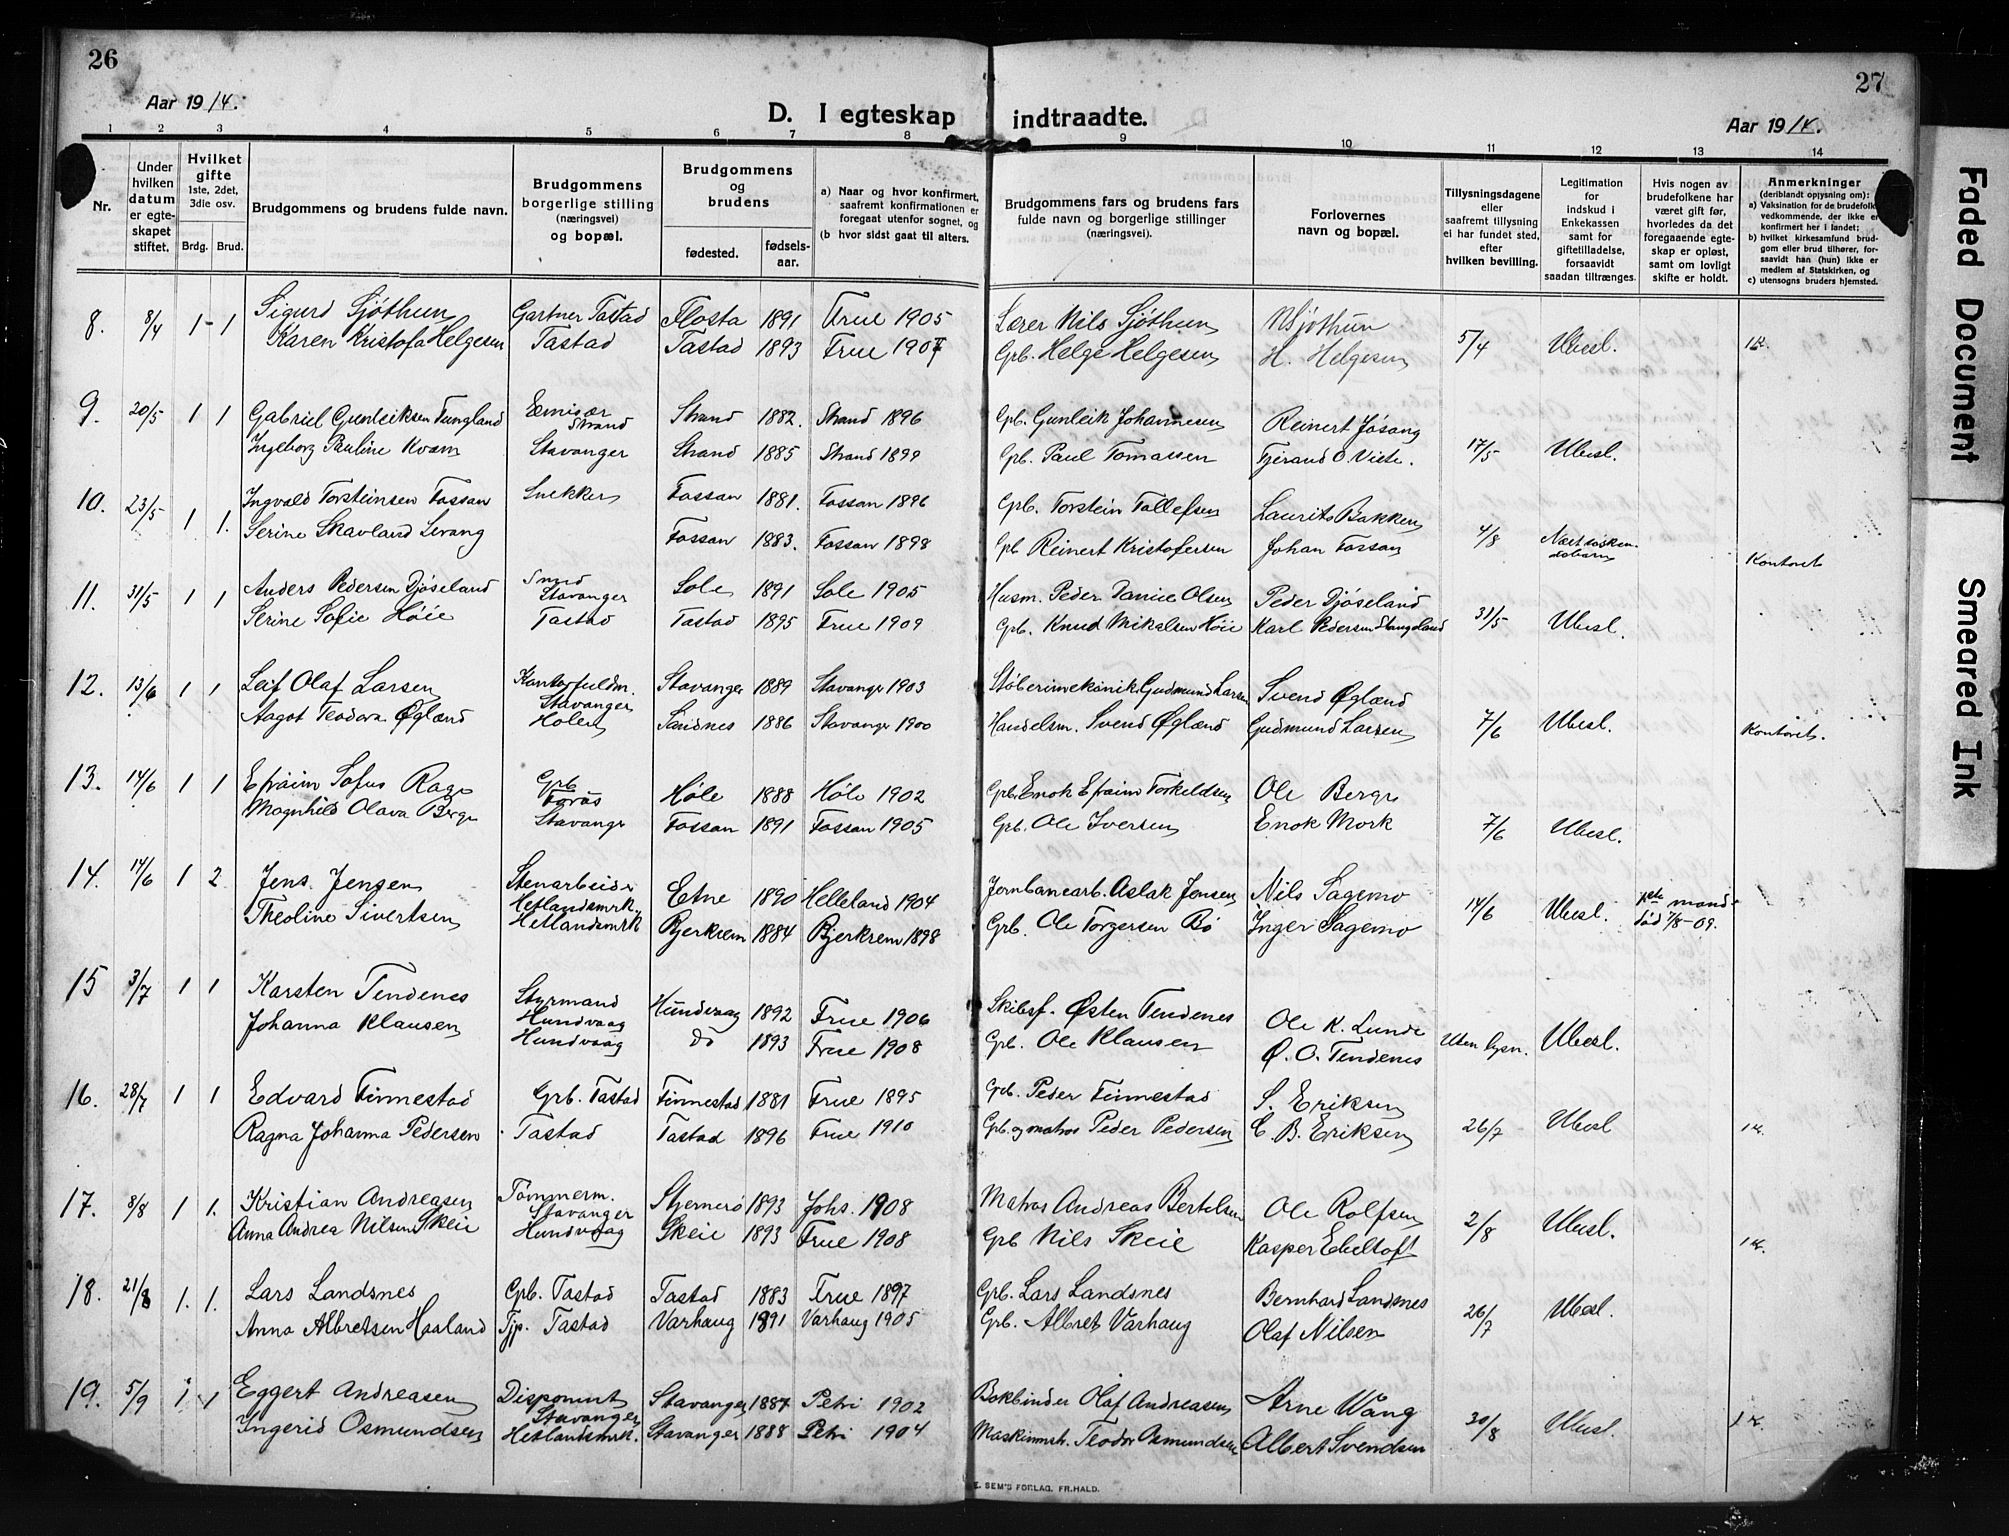 26
27
Aar 1914.
D. I egteskap indtraadte.
Aar 1914.
1 2 3 4 5 6 7 8 9 10 11 12 13 14
Nr.
Under hvilken datum er egteskapet stiftet.
Hvilket gifte
1ste, 2det, 3die osv.
Brdg. Brud.
Brudgommens og brudens fulde navn.
Brudgommens borgerlige stilling (næringsvei) og bopæl.
Brudgommens og brudens
fødested.
fødselsaar.
a) Naar og hvor konfirmert, saafremt konfirmationen er foregaat utenfor sognet, og
(b hvor sidst gaat til alters.
Brudgommens fars og brudens fars fulde navn og borgerlige stillinger (næringsvei).
Forlovernes navn og bopæl.
Tillysningsdagene eller saafremt tillysning ei har fundet sted, efter hvilken bevilling.
Legitimation for indskud i Enkekassen samt for giftetilladelse, forsaavidt saadan tiltrænges.
Hvis nogen av brudefolkene har været gift før, hvorledes da det foregaaende egteskap er opløst, samt om lovligt skifte er holdt.
Anmerkninger
(deriblandt opysning om):
a) Vaksination for de brudefolk vedkommende, der ikke er konfirmert her i landet;
b) hvilket kirkesamfund brudgom eller brud tilhører, forsaavidt han (hun) ikke er medlem af Statskirken, og
c) utensogns bruders hjemsted.
8. 8/4 1 - 1 Sigurd Sjøthun Gartner Tastad Flosta 1891 Frue 1905 Lærer Nils Sjøthun N Sjøthun 5/4 Ubesl.
Karen Kristofa Helgesen Tastad Tastad 1893 Frue 1907 Grb. Helge Helgesen H. Helgesen
9. 20/5 1 1 Gabriel Gunleiksen Tungland Strand Strand 1882. Strand 1896 Grb. Gunleik Johannesen Reinert Jøsang 17/5 Ubesl.
Ingeborg Pauline Kvam Stavanger Strand 1885 Strand 1899 Grb. Paul Tomassen
10. 23/5 1 1. Ingvald Torsteinsen Fossan Snekker Fossan 1881. Fossan 1896 Grb. Torstein Tollefsen Laurits Bakken 4/8
Serine Skavland Levang Fossan 1883. Fossan 1898 Grb Reinert Kristofersen Johan Fossan Kontoret
11. 31/5 1 1 Anders Pedersen Djøseland Smed Stavanger Sole 1891 Sole 1905 Husm. Peder Danie Olsen Peder Djøseland 31/5 Ubesl.
Serine Sofie Høie Tastad Tastad 1895 Frue 1909 Grb. Knud Mikalsen Høie Karl Pedersen Stangeland
12. 13/6 1 1 Leif Olaf Larsen Kontorfuldm. Stavanger Stavanger 1889 Stavanger 1903 Gudmund Larsen Svend Øglænd 7/6 Ubesl.
Aagot Teodora Øglænd Holen Sandnes 1886 Stavanger 1900 Handelsm. Svend Øglænd Gudmund Larsen Kontoret.
13. 14/6 1 1 Efraim Sofus Rage Grb Høle 1888 Høle 1902 Grb. Enok Efraim Torkeldsen Ole Berge 7/6 Ubesl.
Magnhild Olava Berge Stavanger Fossan 1891 Fossan 1905 Grb. Ole Iversen Enok Mork
14. 14/6 1 2 Jens Jensen Stenarbeider Hetlandsmrk. Etne 1890 Helleland 1904 Jernbanearb. Aslak Jensen Nils Sagemo 14/6 Ubesl. mand død 1/8-09.
Theoline Sivertsen Hetlandsmrk Bjerkrem 1884 Bjerkrem 1898 Grb. Ole Torgersen Bø Inger Sagemo
15 3/7 1 1 Karsten Tendenes Styrmand Hundvaag Hundvaag 1892 Frue 1906 Skibsf. Østen Tendenes Ole K. Lunde Uten lysn. Ubesl.
Johanna Klausen Hundvaag do 1893 Frue 1908 Grb. Ole Klausen Ø. O. Tendenes
16. 28/7 1 1 Edvard Finnestad Grb. Tastad Finnestad 1881 Frue 1895 Grb. Peder Finnestad S. Eriksen 26/7 Ubesl
Ragna Johanna Pedersen Tastad Tastad 1896 Frue 1910 Grb. og matros Peder Pedersen C. B. Eriksen
17. 8/8 1 1. Kristian Andreasen Tømmerm. Stavanger Stjernerø 1893 Johs. 1908 Matros Andreas Bertelsen Ole Rolfsen 2/8 Ubesl.
Anna Andrea Nilsen Skeie Hundvaag Skeie 1893 Frue 1908 Grb Nils Skeie Kasper Ebeltoft
18. 21/8 1. 1. Lars Landsnes Grb. Tastad Tastad 1883 Frue 1897 Grb. Lars Landsnes Bernhard Landsnes 26/7 Ubesl.
Anna Albretsen Haaland Tjp. Tastad Varhaug 1891 Varhaug 1905 Grb. Albret Varhaug Olaf Nilsen
19. 5/9 1 1 Eggert Andreasen Disponent Stavanger Stavanger 1887 Petri 1902 Bokbinder Olaf Andreasen Arne Wang 30/8 Ubesl.
Ingerid Osmundsen Hetlandsmrk. Stavanger 1888 Petri 1904 Maskinmstr. Teodor Osmundsen Albert Svendsen
E. SEM'S FORLAG, FR.HALD.
Faded Document
Smeared Ink